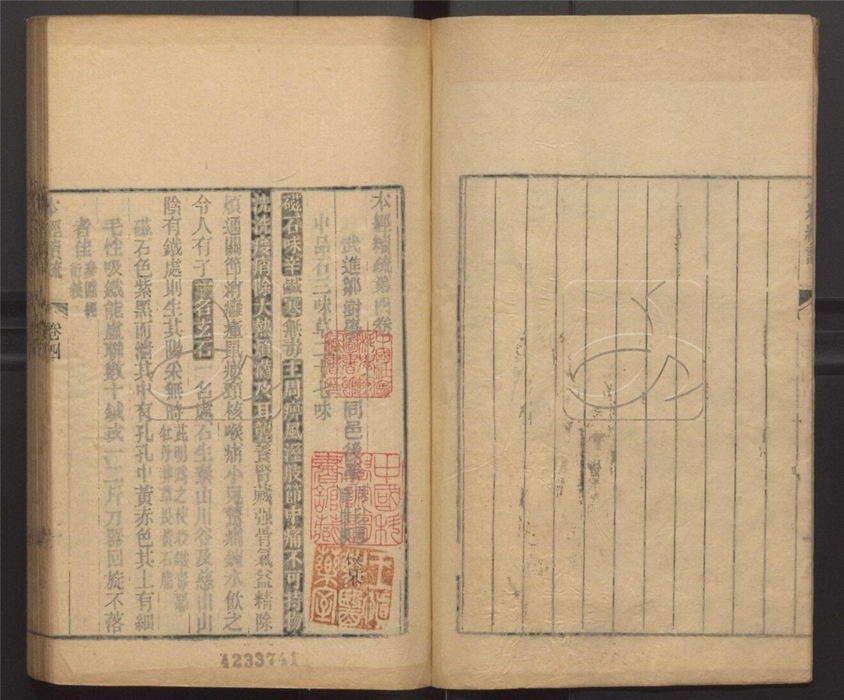 本經續疏第四卷
武進鄒澍學
同邑後學
校
中品石三味草二十七味
磁石味辛鹹寒無毒主周痹風溼肢節中痛不可持物
洗洗痠㾕除大熱煩滿及耳聾養腎藏强骨氣益精除
煩通關節消癰腫鼠瘻頸核喉痛小兒驚癇鍊水飲之
令人有子一名玄石一名處石生泰山川谷及慈山山
陰有鐵處則生其陽采無時
磁石色紫黑而濇其中有孔孔中黃赤色其上有細
毛性吸鐵能虛聯數十鍼或一二斤刀器回旋不落
者佳
本經續疏
卷四
4233741